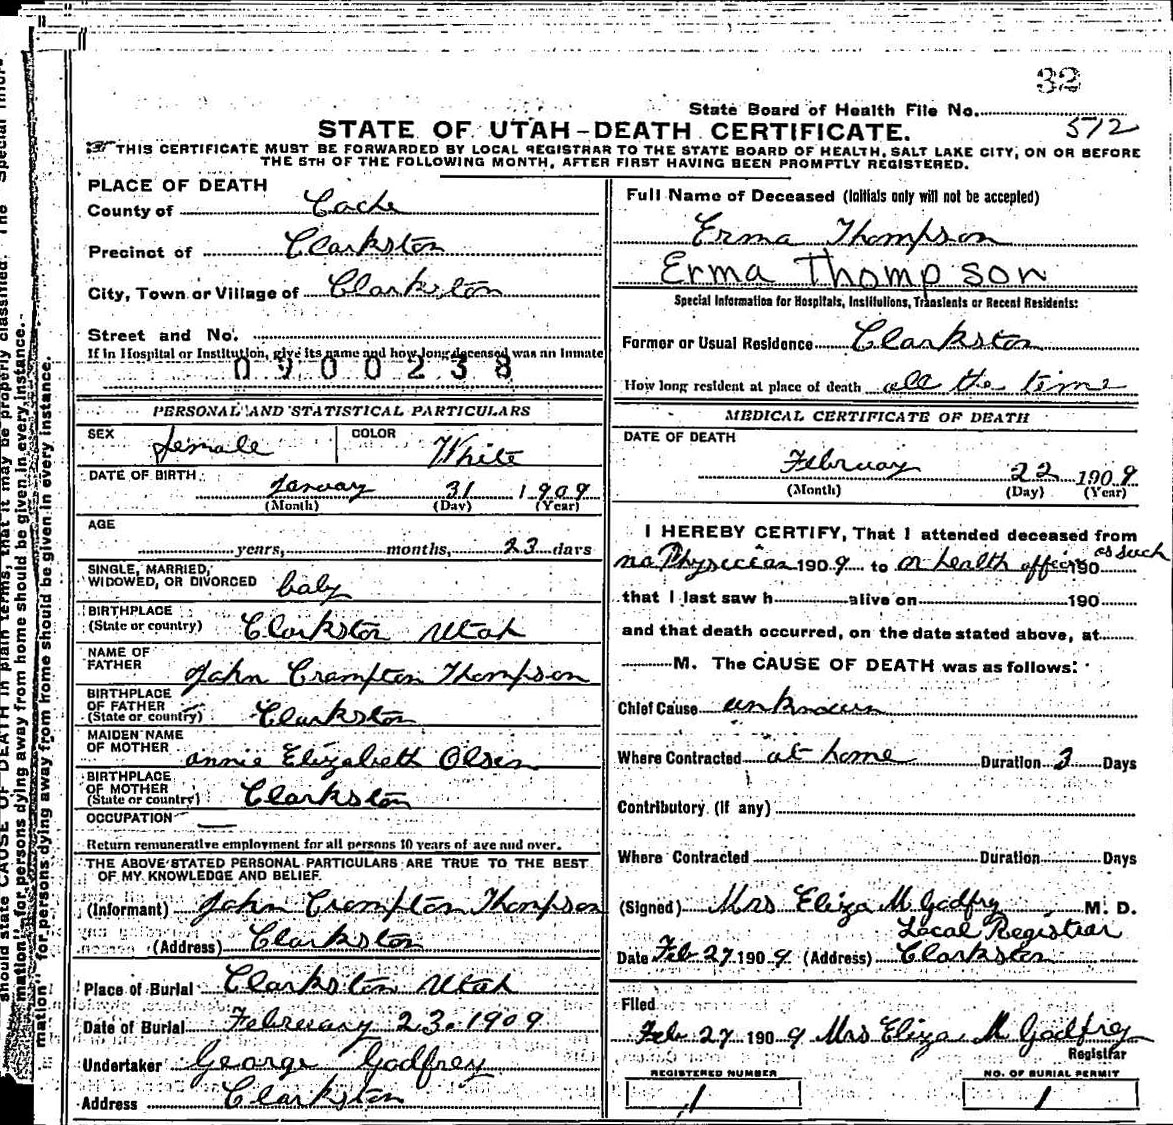 32
State Board of Health File No.
572
STATE OF UTAH-DEATH CERTIFICATE.
THIS CERTIFICATE MUST BE FORWARDED BY LOCAL REGISTRAR TO THE STATE BOARD OF HEALTH, SALT LAKE CITY, ON OR BEFORE
THE 5TH OF THE FOLLOWING MONTH, AFTER FIRST HAVING BEEN PROMPTLY REGISTERED.
PLACE OF DEATH
County of Cache
Precinct of Clarkston
City, Town or Village of Clarkston
Street and No.
If in Hospital or Institution, give its name and how long deceased was an Inmate
0900238
PERSONAL AND STATISTICAL PARTICULARS
SEX female COLOR White
DATE OF BIRTH January 31 1909
(Month) (Day) (Year)
AGE
years, months, 23 days
SINGLE, MARRIED,
WIDOWED, OR DIVORCED baby
BIRTHPLACE
(State or country) Clarkston Utah
NAME OF
FATHER John Crompton Thompson
BIRTHPLACE
OF FATHER
(State or country) Clarkston
MAIDEN NAME
OF MOTHER annie Elizabeth Olsen
BIRTHPLACE
OF MOTHER
(State or country) Clarkston
OCCUPATION
Return remunerative employment for all persons 10 years of age and over.
THE ABOVE STATED PERSONAL PARTICULARS ARE TRUE TO THE BEST
OF MY KNOWLEDGE AND BELIEF.
(Informant) John Crompton Thompson
(Address) Clarkston
Place of Burial Clarkston Utah
Date of Burial February 23. 1909
Undertaker George Godfrey
Address Clarkston
Full Name of Deceased (Initials only will not be accepted)
Erma Thompson
Erma Thompson
Special Information for Hospitals, Institutions, Transients or Recent Residents:
Former or Usual Residence Clarkston
How long resident at place of death all the time
MEDICAL CERTIFICATE OF DEATH
DATE OF DEATH
February 22 1909
(Month) (Day) (Year)
I HEREBY CERTIFY, That I attended deceased from
no Physician 1909 to or health officer 190 as such
that I last saw h alive on 190
and that death occurred, on the date stated above, at
M. The CAUSE OF DEATH was as follows:
Chief Cause unknown
Where Contracted at home Duration 3 Days
Contributory (if any)
Where Contracted Duration Days
(Signed) Mrs Eliza M Godfrey M. D.
Local Registrar
Date Feb 27 1909 (Address) Clarkston
Filed
Feb 27 1909 Mrs Eliza M Godfrey
Registrar
REGISTERED NUMBER
1
NO. OF BURIAL PERMIT
1
should state CAUSE OF DEATH in plain terms, that it may be properly classified. The "Special Infor-
mation" for persons dying away from home should be given in every instance.
mation" for persons dying away from home should be given in every instance.